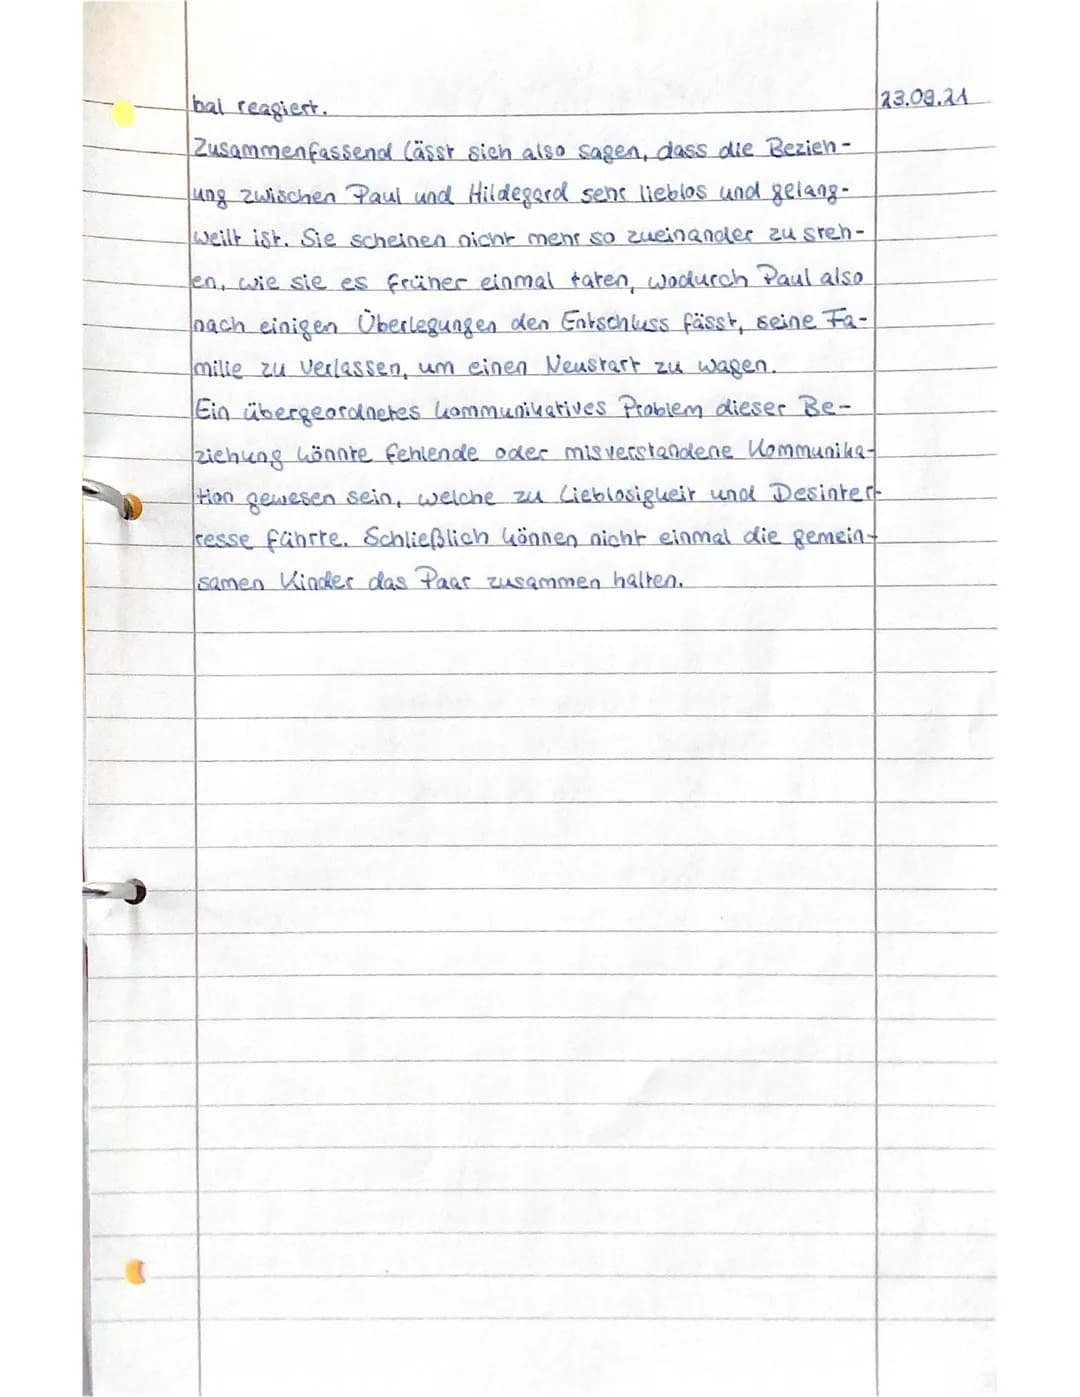 bal reagiert.
23.09.21
Zusammenfassend lässt sich also sagen, dass die Bezieh-
ung zwischen Paul und Hildegard sehr lieblos und gelang-
weilt ist. Sie scheinen nicht mehr so zueinander zu steh-
en, wie sie es früher einmal taten, wodurch Paul also
nach einigen Überlegungen den Entschluss fässt, seine Fa-
milie zu verlassen, um einen Neustart zu wagen.
Ein übergeordnetes kommunikatives Problem dieser Be-
ziehung könnte fehlende oder misverstandene Kommunika-
tion gewesen sein, welche zu Lieblosigkeit und Desinter-
resse führte. Schließlich können nicht einmal die gemein-
samen Kinder das Paar zusammen halten.